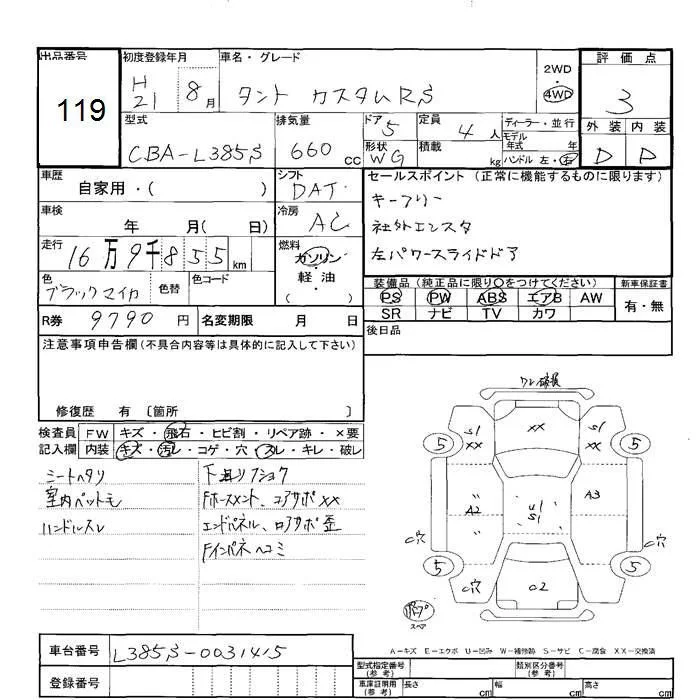 出品番号 初度登録年月 車名・グレード 評価点
119
H 21 8月 タント カスタムRS
2WD
・
4WD
3
型式 排気量 ドア 5 定員 4人 ディーラー・並行
外装 内装
CBA-L385S 660cc
形状 WG 積載 kg
モデル年式 年
ハンドル 左・右
D D
車歴 シフト セールスポイント (正常に機能するものに限ります)
自家用・( ) DAT
キーフリー
車検 年 月( 日) 冷房 AC
社外エンスタ
走行 16万9千855km 燃料 ガソリン・軽・油 ( )
左パワースライドドア
色 ブラックマイカ 色替 色コード
装備品 (純正品に限り○をつけてください) 新車保証書
PS PW ABS エアB AW 有・無
SR ナビ TV カワ
R券 9790円 名変期限 月 日
後日品
注意事項申告欄(不具合内容等は具体的に記入して下さい)
修復歴 有 〔箇所 〕
検査員 FW キズ・飛石・ヒビ割・リペア跡・×要
記入欄 内装 キズ・汚レ・コゲ・穴・スレ・キレ・破レ
シートヘタリ
室内ペットモ
ハンドルスレ
下廻リフショク
Fホースメント、コアサポ××
エンドパネル、ロアサポ歪
Fインパネヘコミ
ワレ破損
S1 ×× ×× S1 ××
5 5
A2 U1 S1 A3
C穴 C穴
5 5
C穴 C2 C穴
スペア
A-キズ E-エクボ U-凹み W-補修跡 S-サビ C-腐食 XX-交換済
車台番号 L385S-0031415
登録番号
型式指定番号 (参考) 類別区分番号 (参考)
車庫証明用 (参考) 長さ cm 幅 cm 高さ cm